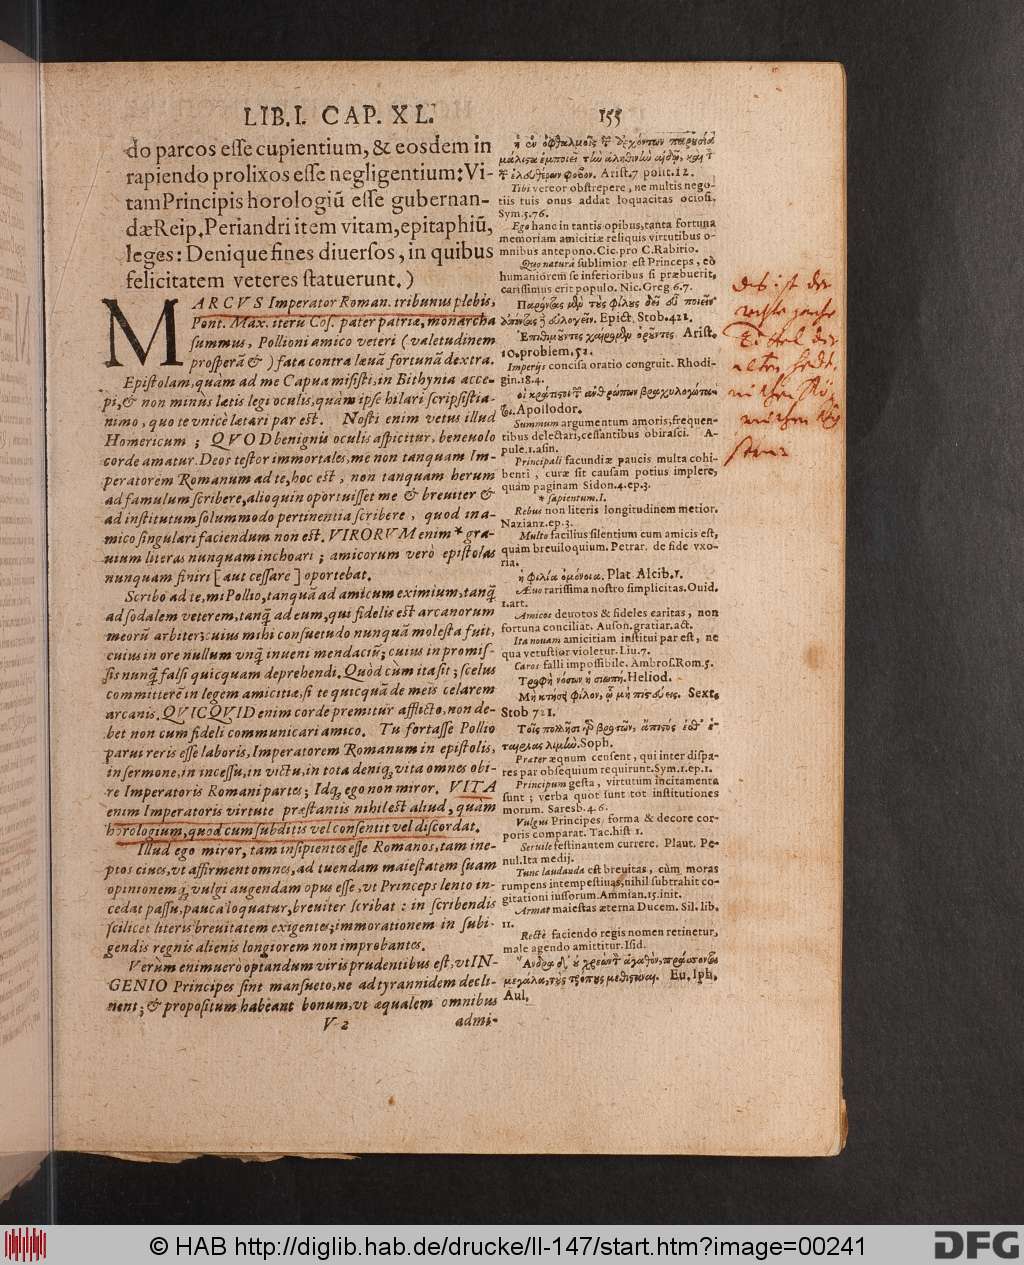 LIB. I. CAP. XL. 155
do parcos esse cupientium, & eosdem in
rapiendo prolixos esse negligentium: Vi-
tam Principis horologiũ esse gubernan-
dæ Reip. Periandri item vitam, epitaphiũ,
leges: Denique fines diuersos, in quibus
felicitatem veteres statuerunt.)
MARCVS Imperator Roman. tribunus plebis,
Pont. Max. iterũ Cos. pater patriæ, monarcha
summus, Pollioni amico veteri (valetudinem
prosperã & ) fata contra læuã fortunã dextra.
Epistolam, quàm ad me Capua misisti, in Bithynia acce-
pi, & non minùs lætis legi oculis, quàm ipse hilari scripsisti a-
nimo, quo te vnicè lætari par est. Nosti enim vetus illud
Homericum; QVOD benignis oculis aspicitur, beneuolo
corde amatur. Deos testor immortales, me non tanquam Im-
peratorem Romanum ad te, hoc est, non tanquam herum
ad famulum scribere, alioquin oportuisset me & breuiter &
ad institutum solummodo pertinentia scribere, quod in a-
mico singulari faciendum non est. VIRORVM enim * gra-
uium literas nunquam inchoari; amicorum verò epistolas
nunquam finiri [aut cessare] oportebat.
Scribo ad te, mi Pollio, tanquã ad amicum eximium, tanq̃
ad sodalem veterem, tanq̃ ad eum, qui fidelis est arcanorum
meorũ arbiter; cuius mihi consuetudo nunquã molesta fuit,
cuius in ore nullum vnq̃ inueni mendaciũ; cuius in promis-
sis nunq̃ falsi quicquam deprehendi. Quòd cùm ita sit; scelus
committerẽ in legem amicitiæ, si te quicquã de meis celarem
arcanis. QVICQVID enim corde premitur afflicto, non de-
bet non cum fideli communicari amico. Tu fortasse Pollio
parus reris esse laboris, Imperatorem Romanum in epistolis,
in sermone, in incessu, in victu, in tota deniq; vita omnes obi-
re Imperatoris Romani partes; Idq; ego non miror. VITA
enim Imperatoris virtute præstantis nihil est aliud, quàm
horologium, quod cum subditis vel consentit vel discordat.
Illud ego miror, tam insipientes esse Romanos, tam ine-
ptos ciues, vt affirment omnes, ad tuendam maiestatem suam
opinionemq; vulgi augendam opus esse, vt Princeps lento in-
cedat passu, pauca loquatur, breuiter scribat: in scribendis
scilicet literis breuitatem exigentes; immorationem in subi-
gendis regnis alienis longiorem non improbantes.
Verùm enimuerò optandum viris prudentibus est, vt IN-
GENIO Principes sint mansueto, ne ad tyrannidem decli-
nent; & propositum habeant bonum, vt æqualem omnibus
V 2 admi-
Arist. 7 polit. 12.
Tibi vereor obstrepere, ne multis nego-
tiis tuis onus addat loquacitas ociosi.
Sym. 5. 76.
Ego hanc in tantis opibus, tanta fortuna
memoriam amicitiæ reliquis virtutibus o-
mnibus antepono. Cic. pro C. Rabirio.
Quo natura sublimior est Princeps, eò
humaniorem se inferioribus si præbuerit,
carissimus erit populo. Nic. Greg 6. 7.
Epict. Stob. 421.
Arist.
10. problem. 52.
Imperiis concisa oratio congruit. Rhodi-
gin. 18. 4.
Apollodor.
Summum argumentum amoris, frequen-
tibus delectari, cessantibus obirasci. A-
pule. 1. asin.
Principali facundiæ paucis multa cohi-
benti, curæ sit causam potius implere,
quàm paginam Sidon. 4. ep. 3.
* sapientum. I.
Rebus non literis longitudinem metior.
Nazianz. ep. 3.
Multo facilius silentium cum amicis est,
quàm breuiloquium. Petrar. de fide vxo-
ria.
ἡ φιλία ὁμόνοια. Plat. Alcib. 1.
Æuo rarissima nostro simplicitas. Ouid.
1. art.
Amicos deuotos & fideles caritas, non
fortuna conciliat. Auson. gratiar. act.
Ita nouam amicitiam institui par est, ne
qua vetustior violetur. Liu. 7.
Caros falli impossibile. Ambros. Rom. 5.
Heliod.
Sext.
Stob 721.
Soph.
Prater æqnum censent, qui inter dispa-
res par obsequium requirunt. Sym. 1. ep. 1.
Principum gesta, virtutum incitamenta
sunt; verba quot sunt tot institutiones
morum. Saresb. 4. 6.
Vulgus Principes, forma & decore cor-
poris comparat. Tac. hist 1.
Seruile festinautem currere. Plaut. Pe-
nul. Ita medij.
Tunc laudanda est breuitas, cùm moras
rumpens intempestiuas, nihil subtrahit co-
gitationi iussorum. Ammian. 15. init.
Armat maiestas æterna Ducem. Sil. lib.
11.
Rectè faciendo regis nomen retinetur,
male agendo amittitur. Isid.
Eu. Iph.
Aul.
des ist der
© HAB http://diglib.hab.de/drucke/ll-147/start.htm?image=00241
DFG